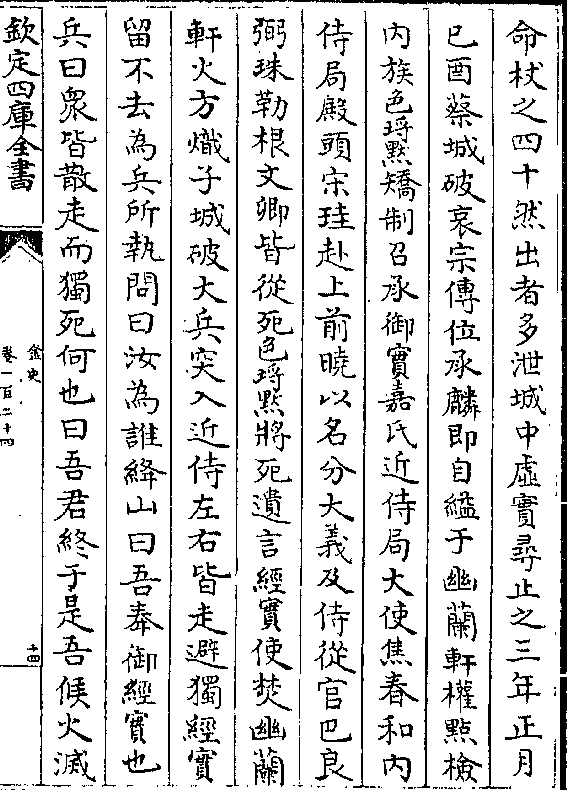 命杖之四十然出者多泄城中虛實尋止之三年正月
己酉蔡城破哀宗傳位承麟即自縊于幽蘭軒權點檢
內族色埒黙矯制召承御實嘉氏近侍局大使焦春和內
侍局殿頭宋珪赴上前曉以名分大義及侍從官巴良
弼珠勒根文卿皆從死色埒黙將死遺言經實使焚幽蘭
軒火方熾子城破大兵突入近侍左右皆走避獨經實
留不去為兵所執問曰汝為誰絳山曰吾奉御經實也
兵曰衆皆散走而獨死何也曰吾君終于是吾候火滅
欽定四庫全書
金史
卷一百二十四
十四